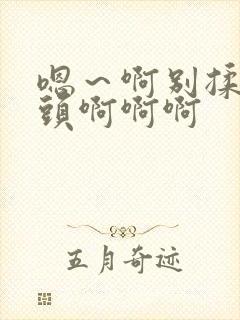 嗯～啊别揉
頭啊啊啊
五月奇迹